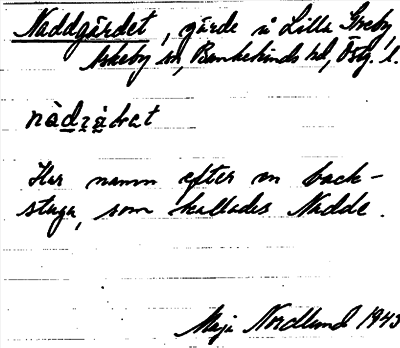 Naddgärdet, gärde å Lilla Greby,
Askeby sn, Bankekinds hd, Östg. l.
nàdzä̀ḍet
Har namn efter en back-
stuga, som kallades Nadde.
Maja Nordlund 1943